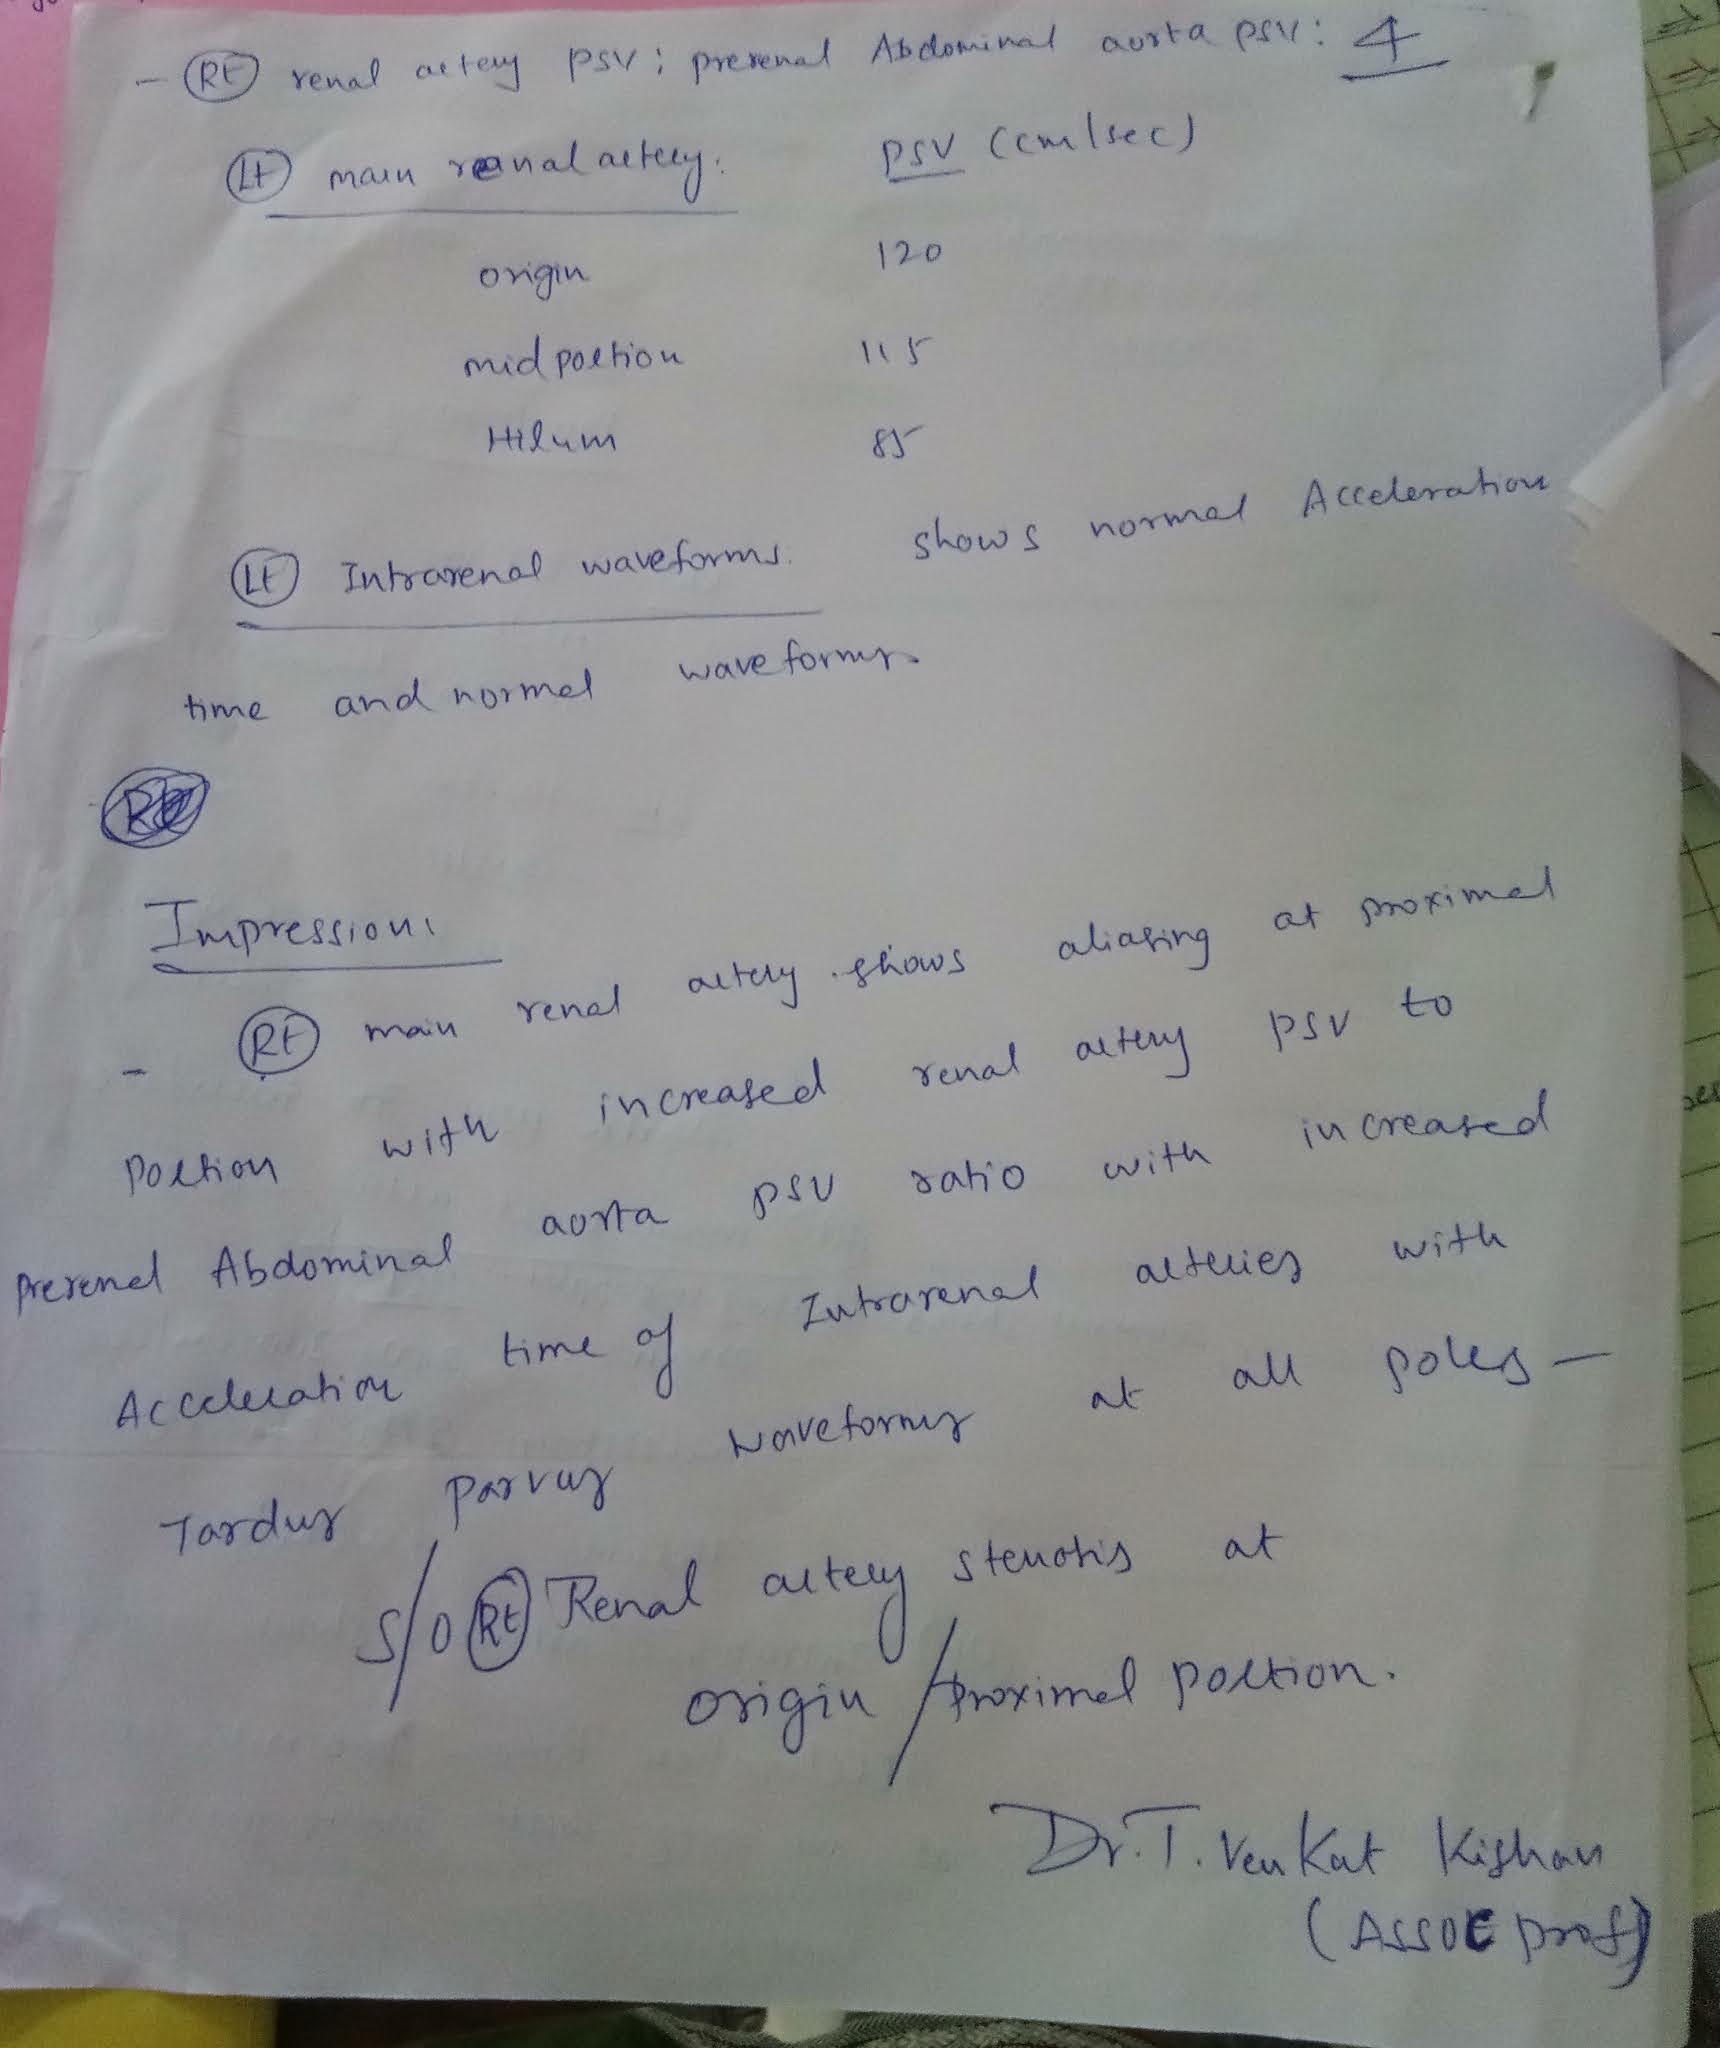 - (Rt) renal artery PSV : prerenal Abdominal aorta PSV : 4
(Lt) main renal artery : PSV (cm/sec)
origin 120
mid portion 115
Hilum 85
(Lt) Intrarenal waveforms. shows normal Acceleration
time and normal waveforms.
Impression:
- (Rt) main renal artery shows aliasing at proximal
portion with increased renal artery PSV to
prerenal Abdominal aorta PSV ratio with increased
Acceleration time of Intrarenal arteries with
Tardus parvus waveforms at all poles –
S/O (Rt) Renal artery stenosis at
origin / proximal portion.
Dr. T. Venkat Kishan
(Assoc prof)